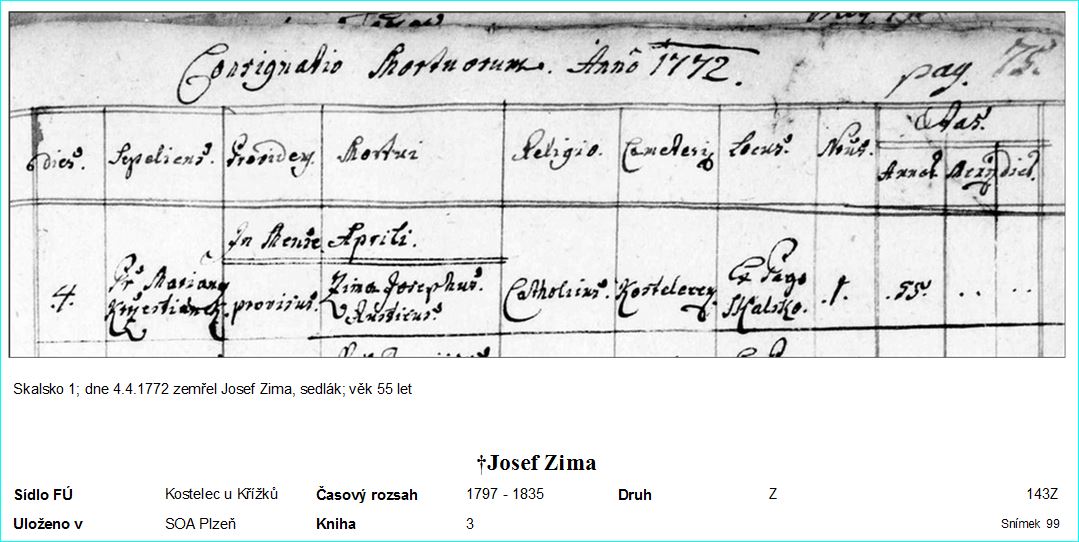 Consignatio Mortuorum. Anno 1772.
pag. 75.
dies. Sepeliens. Providens. Mortui Religio. Locus. Aetas.
In Mense Aprili.
4. Marianus provisus. Zima Josephus. Rusticus. Catholicus. Ex Pago Skalsko. .1. .55. . . . .
Skalsko 1; dne 4.4.1772 zemřel Josef Zima, sedlák; věk 55 let
†Josef Zima
Sídlo FÚ Kostelec u Křížků Časový rozsah 1797 - 1835 Druh Z 143Z
Uloženo v SOA Plzeň Kniha 3 Snímek 99